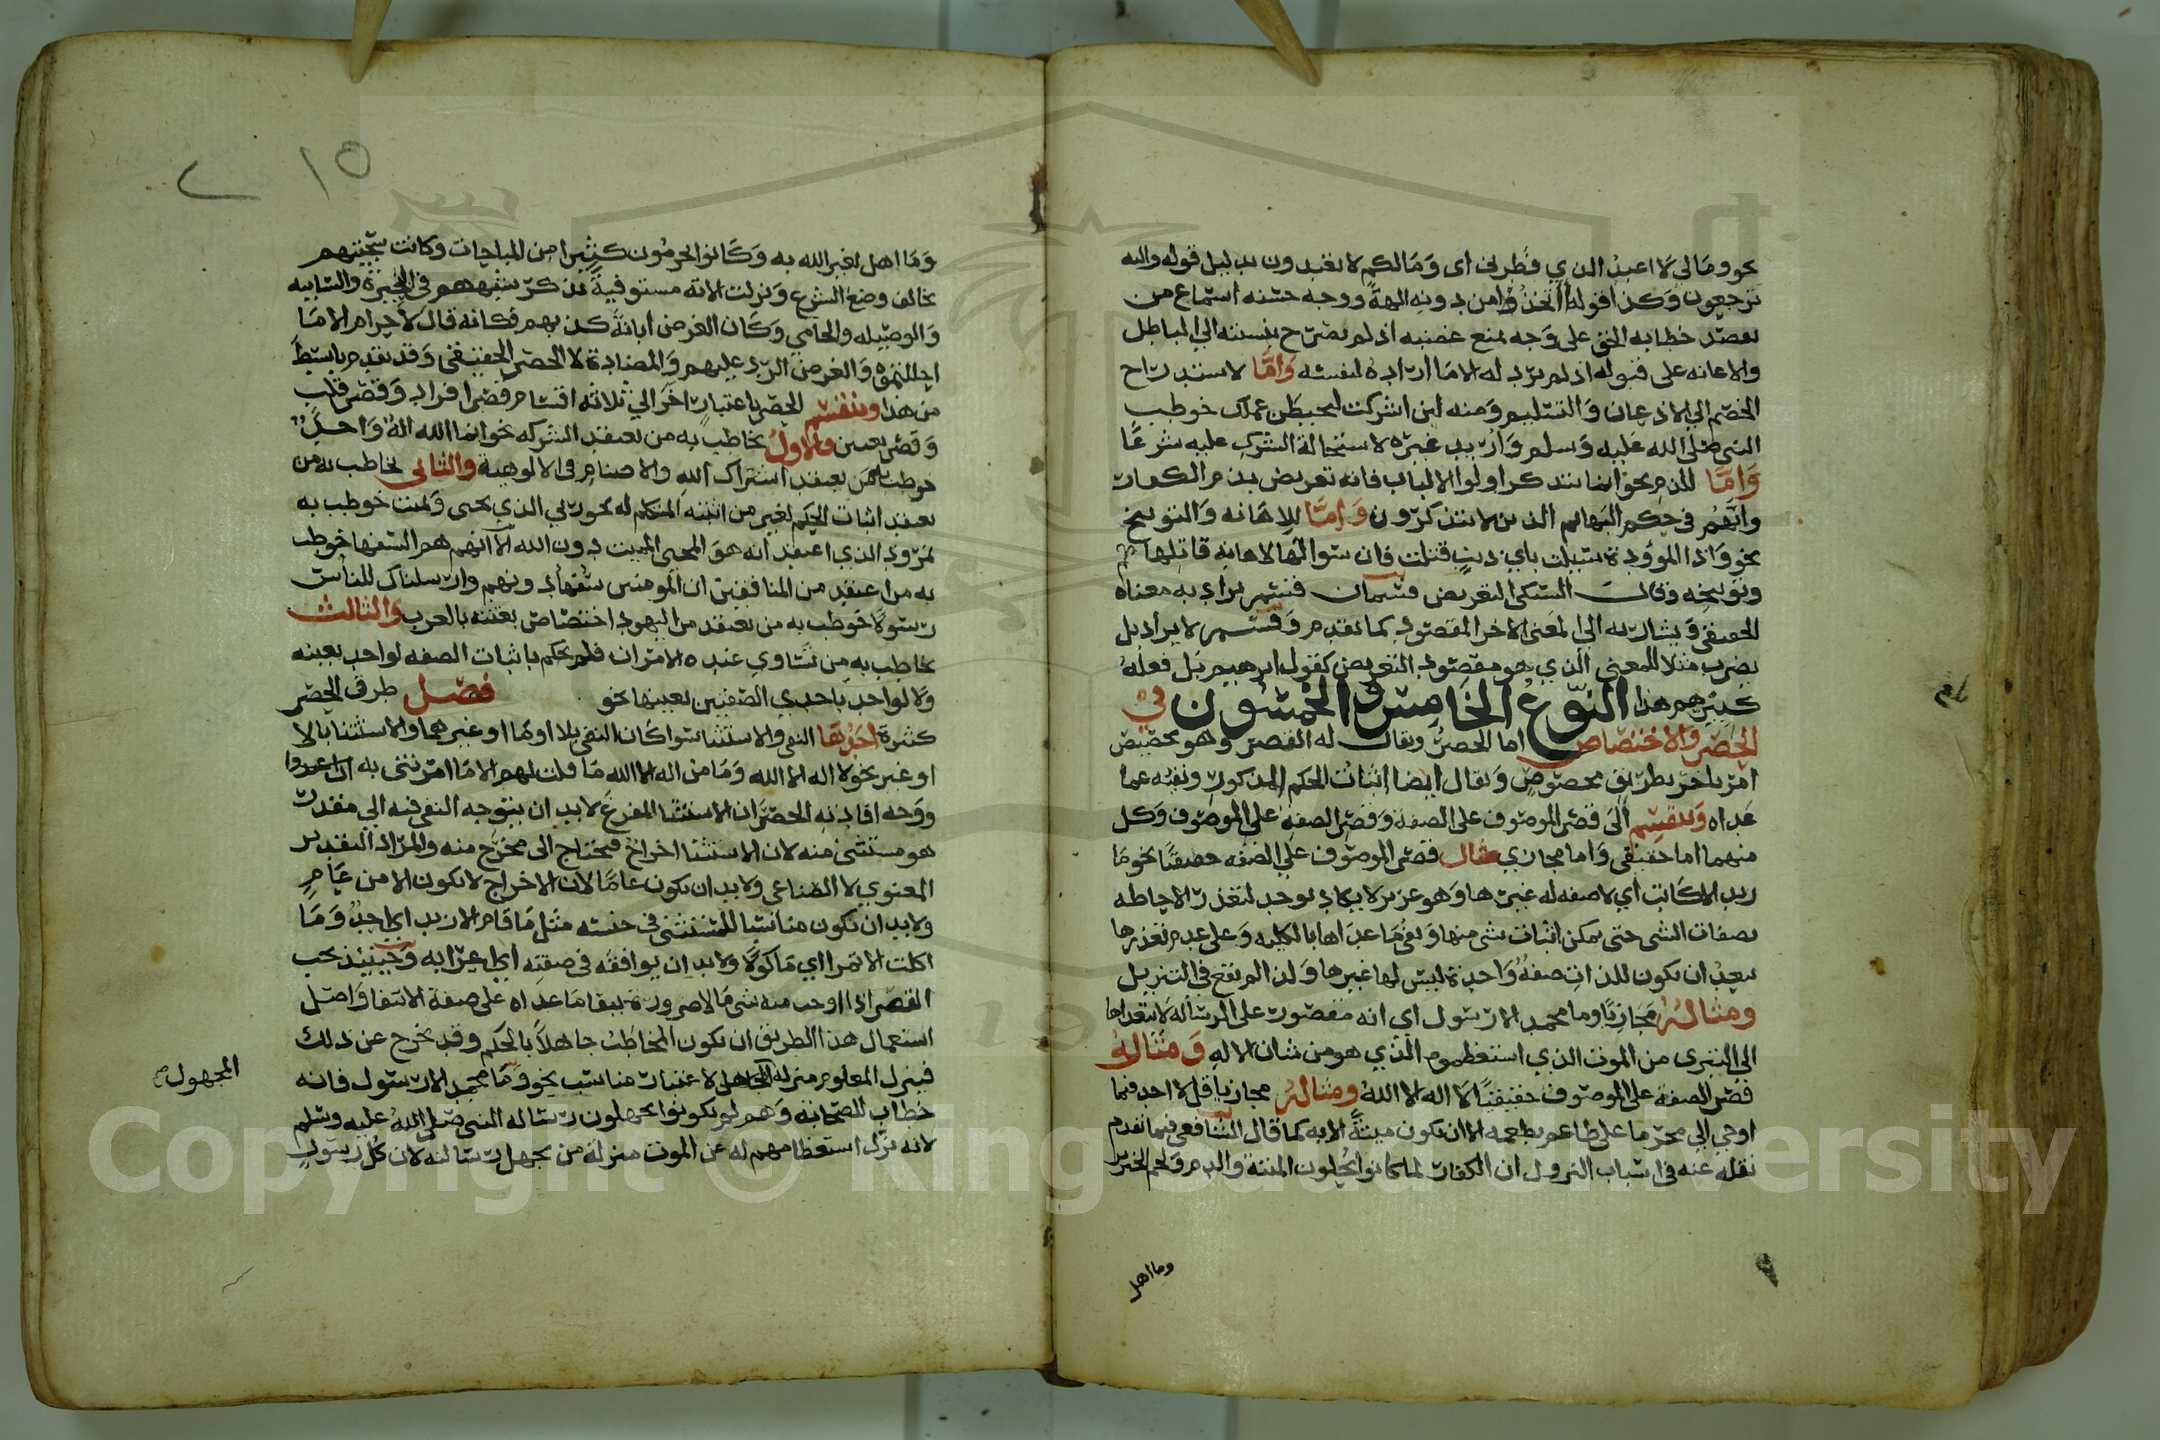 نحو ومالى لا اعبد الذي فطرني اى ومالكم لا تعبدون بدليل قوله واليه
ترجعون وكذا قوله أأتخذ من دونه الهة ووجه حسنه اسماع من
يقصد خطابه الحق على وجه يمنع غضبه اذ لم يصرح بنسبته الي الباطل
والاعانه على قبوله اذ لم يرد له الا ما اراده لنفسه واما لاستدراج
الخصم الي الاذعان والتسليم ومنه لئن اشركت ليحبطن عملك خوطب
النبي صلى الله عليه وسلم واريد غيره لاستحالة الشرك عليه شرعا
واما للذم نحو انما يتذكر اولوا الالباب فانه تعريض بذم الكفار
وانهم في حكم البهائم الذين لا يتذكرون واما للاهانه والتوبيخ
نحو واذا الموودة سئلت باي ذنب قتلت فان سوالها لاهانة قاتلها
وتوبيخه وقال السبكي التعريض قسمان قسم يراد به معناه
الحقيقى ويشار به الى المعنى الاخر المقصود كما تقدم وقسم لا يراد بل
يضرب مثلا للمعنى الذي هو مقصود التعريض كقول ابرهيم بل فعله
كبيرهم هذا النوع الخامس والخمسون في
الحصر والاختصاص اما الحصر ويقال له القصر وهو تخصيص
امر باخر بطريق مخصوص ويقال ايضا اثبات الحكم للمذكور ونفيه عما
عداه وينقسم الى قصر الموصوف على الصفة وقصر الصفة على الموصوف وكل
منهما اما حقيقى واما مجازي مثال قصر الموصوف على الصفه حقيقيا نحو ما
زيد الا كاتب اي لا صفه له غيرها وهو عزيز لا يكاد يوجد لتعذر الاحاطه
بصفات الشى حتى يمكن اثبات شى منها ونفى ما عداها بالكليه وعلى عدم تعذرها
يبعد ان يكون للذات صفة واحدة ليس لها غيرها ولذا لم يقع في التنزيل
ومثاله مجازيا وما محمد الا رسول اي انه مقصور على الرسالة لا يتعداها
الى التبرى من الموت الذي استعظموه الذي هو من شان الاله ومثاله
قصر الصفة على الموصوف حقيقيا لا اله الا الله ومثاله مجازيا قل لا اجد فيما
اوحي الي محرما على طاعم يطعمه الا ان يكون ميتة الايه كما قال الشافعي فيما تقدم
نقله عنه في اسباب النزول ان الكفار لما كانوا يحلون الميتة والدم ولحم الخنزير
وما اهل
١٥
وما اهل لغير الله به وكانوا يحرمون كثيرا من المباحات وكانت سجيتهم
تخالف وضع الشرع ونزلت الاية مستوفية بذكر شبههم في البحيرة والسايبه
والوصيله والحامي وكان الغرض ابانة كذبهم فكانه قال لا حرام الا ما
احللتموه والغرض الرد عليهم والمضادة لا الحصر الحقيقى وقد تقدم بابسط
من هذا وينقسم الحصر باعتبار اخر الي ثلاثه اقسام قصر افراد وقصر قلب
وقصر تعيين فالاول يخاطب به من يعتقد الشركه نحو انما الله اله واحد
خوطب به من يعتقد اشتراك الله والاصنام في الالوهية والثانى يخاطب به من
يعتقد اثبات الحكم لغير من اثبته المتكلم له نحو ربي الذي يحيى ويميت خوطب به
نمرود الذي اعتقد انه هو المحيى المميت دون الله الا انهم هم السفها خوطب
به من اعتقد من المنافقين ان المومنين سفها دونهم وارسلناك للناس
رسولا خوطب به من يعتقد من اليهود اختصاص بعثته بالعرب والثالث
يخاطب به من تساوي عنده الامران فلم يحكم باثبات الصفه لواحد بعينه
ولا لواحد باحدي الصفتين بعينها نحو فصل طرق الحصر
كثيرة احدها النفى والاستثنا سوا كان النفى بلا او ما او غيرهما والاستثنا بالا
او غير نحو لا اله الا الله وما من اله الا الله ما قلت لهم الا ما امرتنى به ان اعبدوا
ووجه افادته الحصر ان الاستثنا المفرغ لا بد ان يتوجه النفى فيه الي مقدر
هو مستثنى منه لان الاستثنا اخراج فيحتاج الى مخرج منه والمراد التقدير
المعنوي لا الصناعى ولا بد ان يكون عاما لان الاخراج لا يكون الا من عام
ولا بد ان يكون مناسبا للمستثنى في جنسه مثل ما قام الا زيد اي احد وما
اكلت الا تمرا اي ماكولا ولا بد ان يوافقه في صفته اي اعرابه وحينئذ يجب
القصر اذا اوجب منه شى ما بالا ضرورة ببقا ما عداه على صفة الانتفا واصل
استعمال هذا الطريق ان يكون المخاطب جاهلا بالحكم وقد يخرج عن ذلك
فينزل المعلوم منزلة المجهول لاعتبار مناسب نحو وما محمد الا رسول فانه
خطاب للصحابة وهم لم يكونوا يجهلون رسالة النبي صلى الله عليه وسلم
لانه نزل استعظامهم له عن الموت منزلة من يجهل رسالته لان كل رسول
المجهول
Copyright © King Saud University